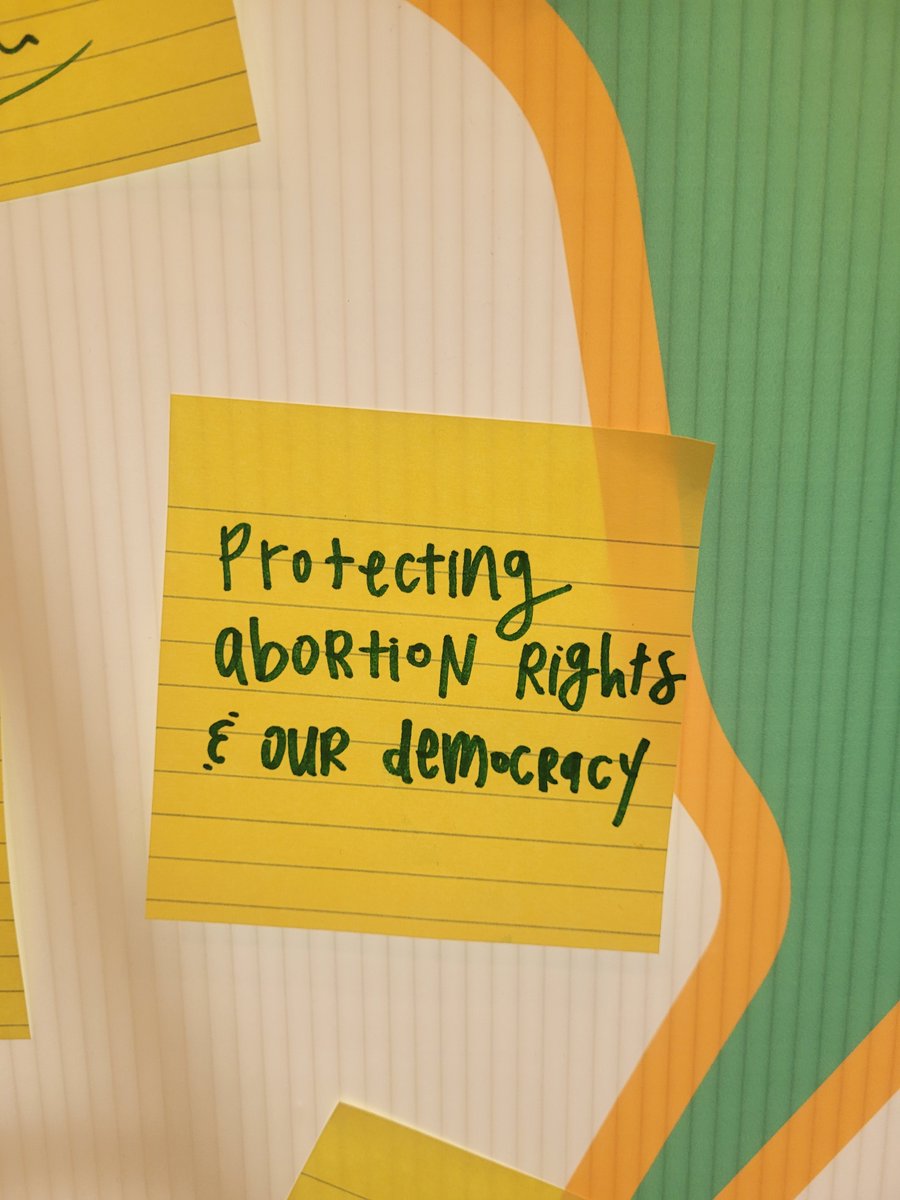 Protecting
abortion Rights
& our democracy